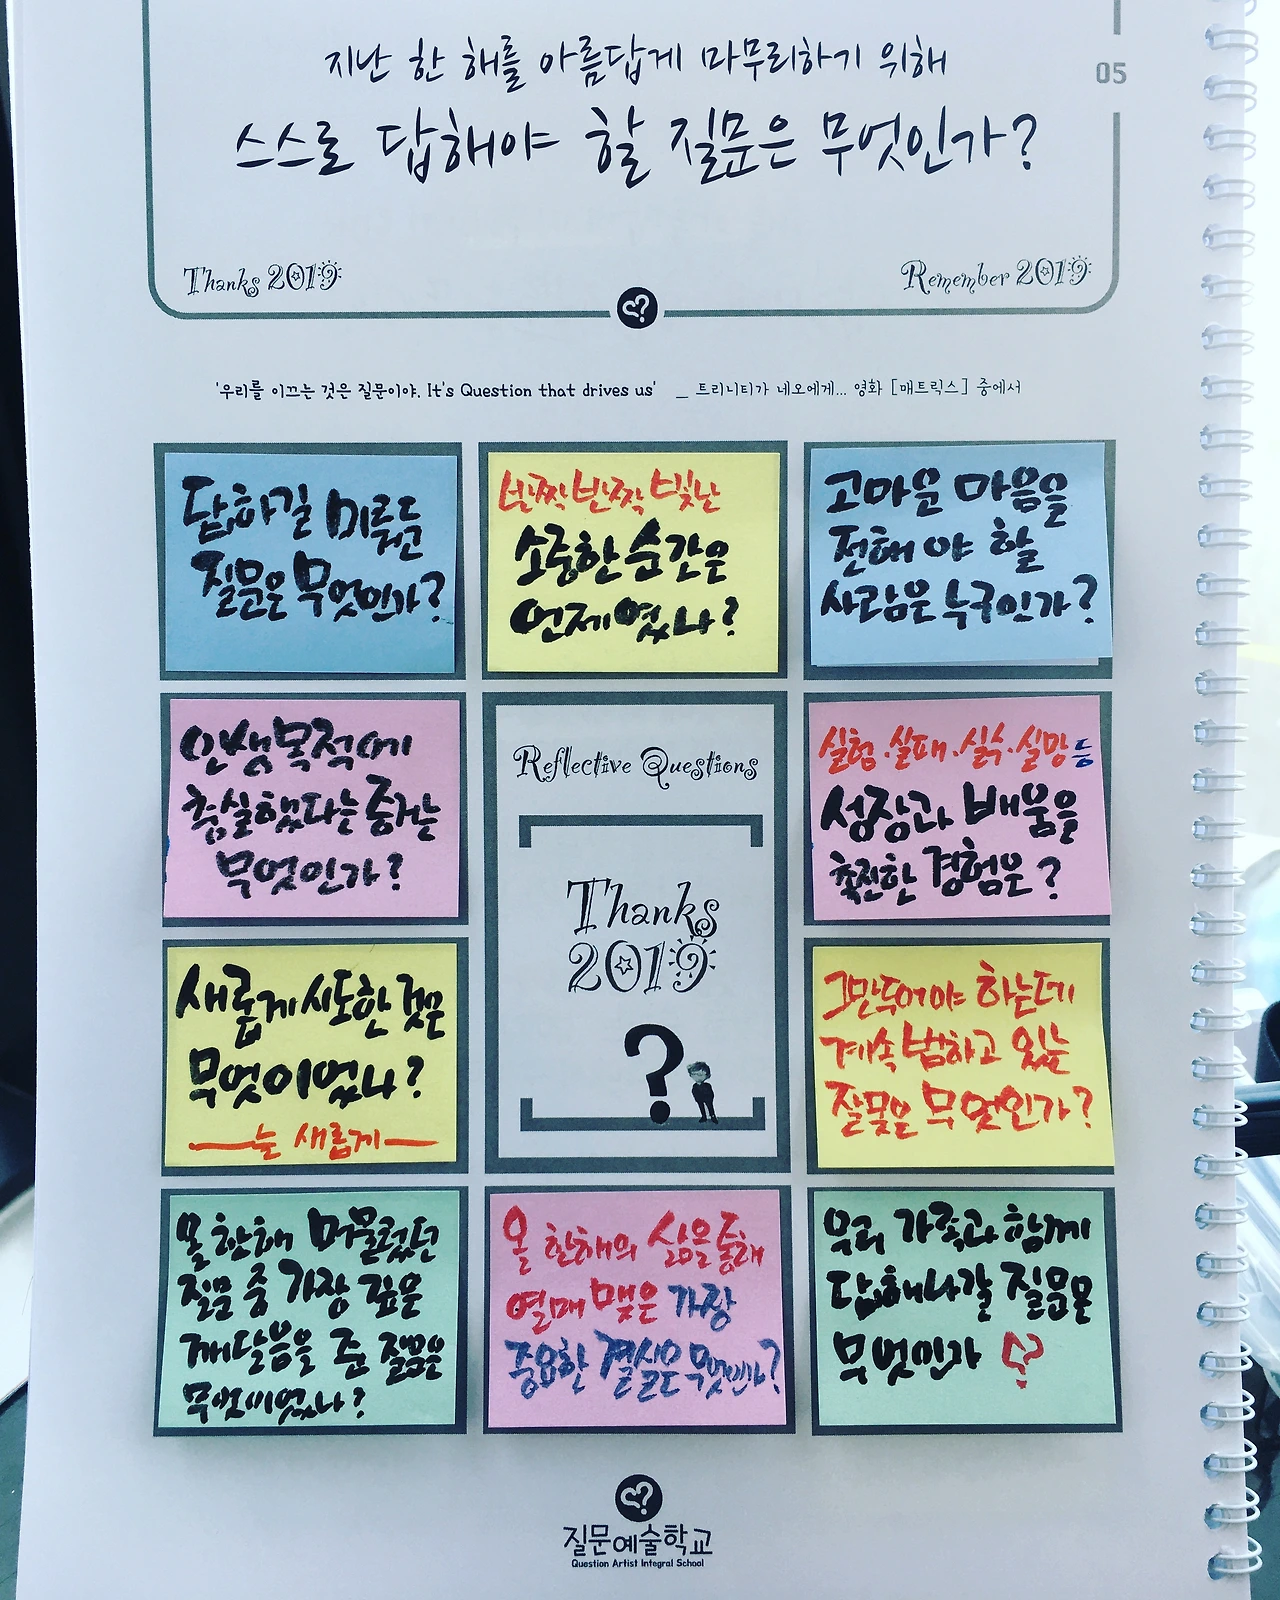 지난 한 해를 아름답게 마무리하기 위해
05
스스로 답해야 할 질문은 무엇인가?
Thanks 2019
Remember 2019
'우리를 이끄는 것은 질문이야. It's Question that drives us' _ 트리니티가 네오에게... 영화 [매트릭스] 중에서
답하길 미뤄둔
질문은 무엇인가?
반짝반짝 빛난
소중한 순간은
언제였나?
고마운 마음을
전해야 할
사람은 누구인가?
인생목적에
충실했다는 증거는
무엇인가?
Reflective Questions
Thanks
2019
?
실험·실패·실수·실망 등
성장과 배움을
촉진한 경험은?
새롭게 시도한 것은
무엇이었나?
늘 새롭게
그만두어야 하는데
계속 범하고 있는
잘못은 무엇인가?
올 한해 머물렀던
질문 중 가장 깊은
깨달음을 준 질문은
무엇이었나?
올 한해의 삶을 통해
열매 맺은 가장
중요한 결실은 무엇인가?
우리 가족과 함께
답해나갈 질문은
무엇인가?
질문예술학교
Question Artist Integral School